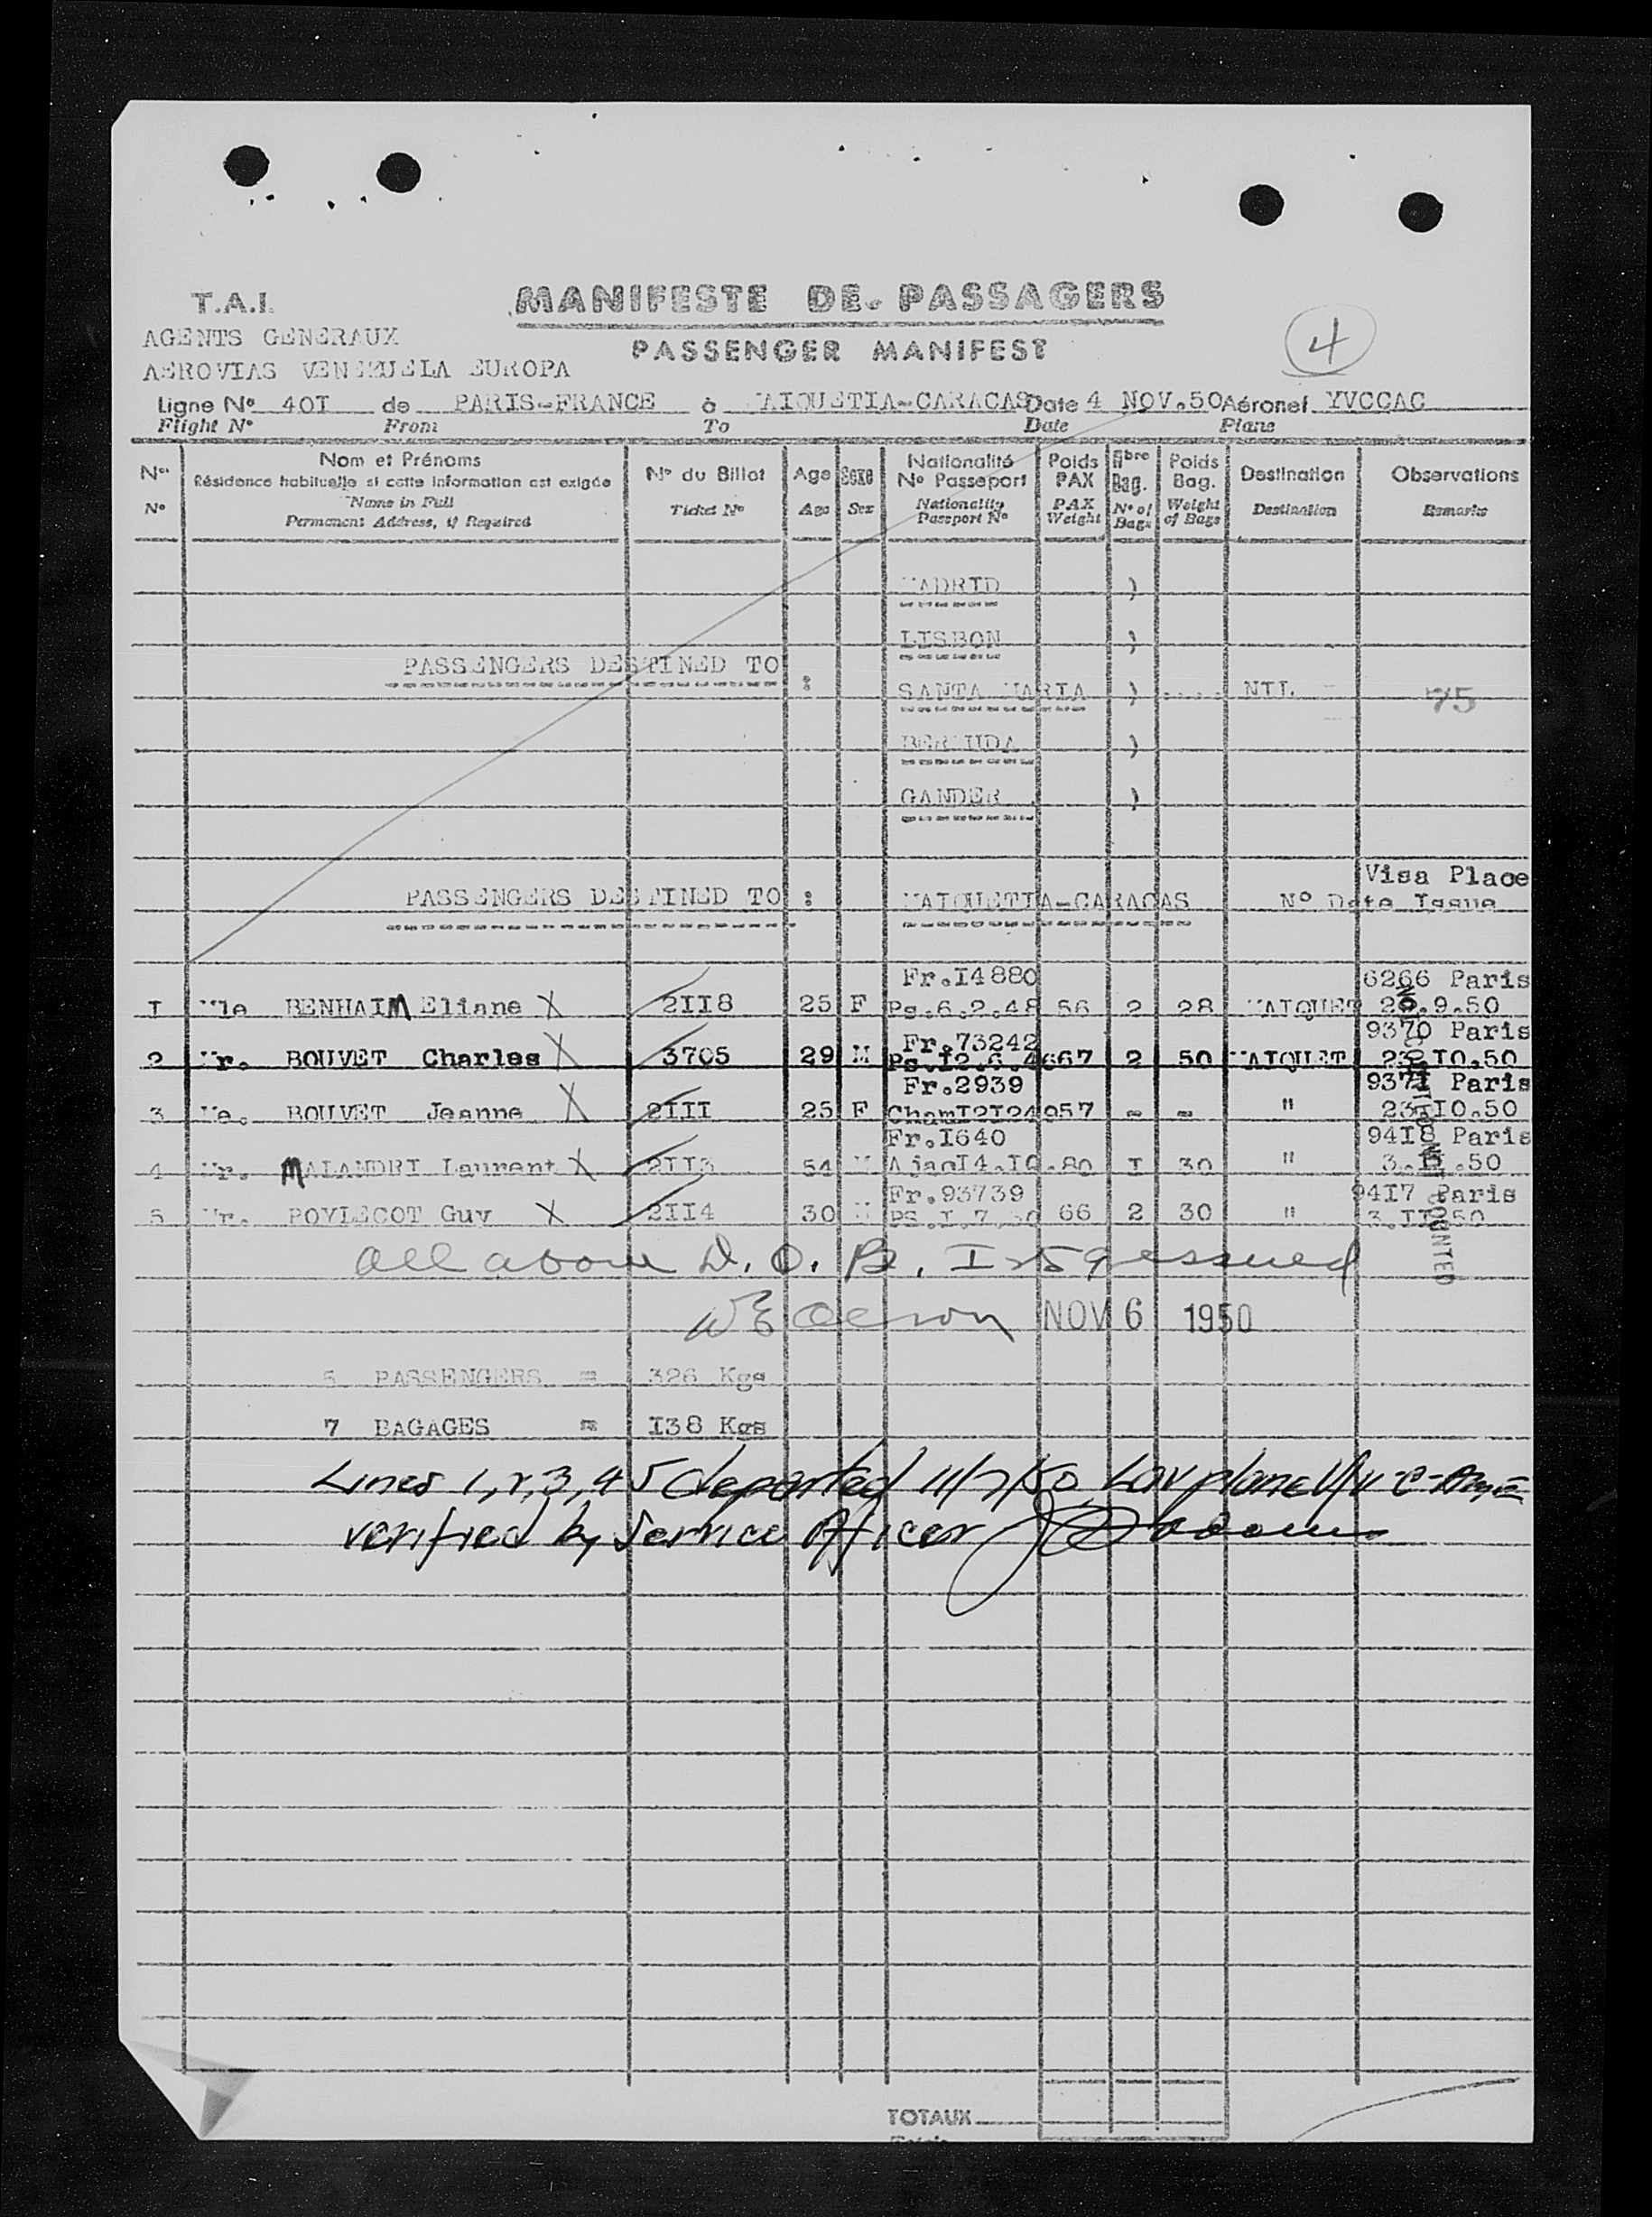 T.A.I.
MANIFESTE DE PASSAGERS
AGENTS GENERAUX
PASSENGER MANIFEST
4
AEROVIAS VENEZUELA EUROPA
Ligne No 40I de PARIS-FRANCE à MAIQUETIA-CARACAS Date 4 NOV.50 Aéronef YVCCAC
Flight No From To Date Plane
No Nom et Prénoms No du Billet Age Sexe Nationalité No Passeport Poids PAX Nbre Bag. Poids Bag. Destination Observations
Résidence habituelle si cette information est exigée
No Name in Full Ticket No Age Sex Nationality Passport No PAX Weight No of Bags Weight of Bags Destination Remarks
Permanent Address, if Required
MADRID )
LISBON )
PASSENGERS DESTINED TO :
SANTA MARIA ) ..... NIL 75
BERMUDA )
GANDER )
Visa Place
PASSENGERS DESTINED TO : MAIQUETIA-CARACAS No Date Issue
Fr.I4880 6266 Paris
I Mle BENHAIM Eliane X 2II8 25 F Ps.6.2.48 56 2 28 MAIQUET .9.50
Fr.73242 9370 Paris
2 Mr. BOUVET Charles X 3705 29 M Ps.I2.6.4667 2 50 MAIQUET 23.I0.50
Fr.2939 937I Paris
3 Me. BOUVET Jeanne X 2III 25 F ChamI2I24957 - - " 23.I0.50
Fr.I640 94I8 Paris
4 Mr. MALANDRI Laurent X 2II3 54 M AjacI4.I0.80 I 30 " 3.II.50
Fr.93739 94I7 Paris
5 Mr. POYLECOT Guy X 2II4 30 M PS.I.7.50 66 2 30 " 3.II.50
NOT COUNTED
All above D.O.B. I 259 issued
NOV 6 1950
5 PASSENGERS = 326 Kgs
7 BAGAGES = I38 Kgs
Lines 1, 2, 3, 4 5 departed 11/7/50 LAV plane
verified by Service Officer
TOTAUX